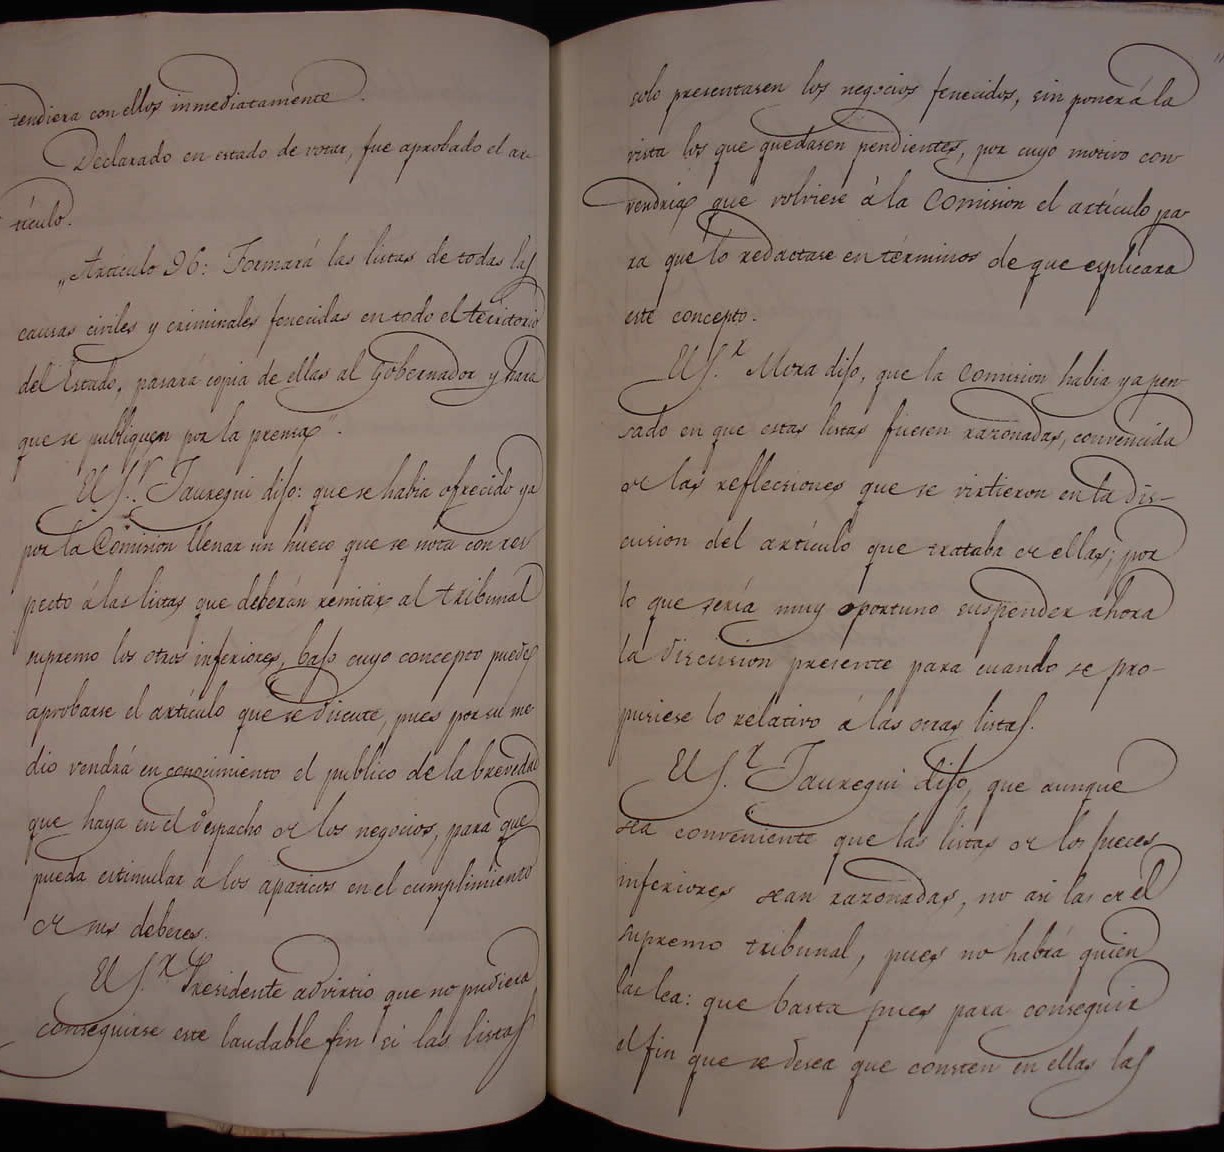 tendiera con ellos inmediatamente.
Declarado en estado de votar, fue aprobado el ar-
tículo.
„Artículo 96: Formará las listas de todas las
causas civiles y criminales fenecidas en todo el territorio
del Estado, pasará copia de ellas al Gobernador y hará
que se publiquen por la prensa".
El S.r Jauregui dijo: que se habia ofrecido ya
por la Comision llenar un hueco que se nota con res-
pecto á las listas que deberán remitir al tribunal
supremo los otros inferiores, bajo cuyo concepto puede
aprobarse el artículo que se discute, pues por su me-
dio vendrá en conocimiento el publico de la brevedad
que haya en el despacho de los negocios, para que
pueda estimular a los apaticos en el cumplimiento
de sus deberes.
El S.r Presidente advirtio que no pudiera
conseguirse este laudable fin si las listas
solo presentasen los negocios fenecidos, sin poner á la
vista los que quedasen pendientes, por cuyo motivo con-
vendria que volviese á la Comision el artículo pa-
ra que lo redactase en términos de que esplicara
este concepto.
El S.r Mora dijo, que la Comision habia ya pen-
sado en que estas listas fuesen razonadas, convencida
de las reflecsiones que se virtieron en la dis-
cusion del artículo que trataba de ellas; por
lo que sería muy oportuno suspender ahora
la discusion presente para cuando se pro-
pusiese lo relativo á las otras listas.
El S.r Jauregui dijo, que aunque
sea conveniente que las listas de los jueces
inferiores sean razonadas, no asi las de el
supremo tribunal, pues no habrá quien
las lea: que basta pues para conseguir
el fin que se desea que consten en ellas las